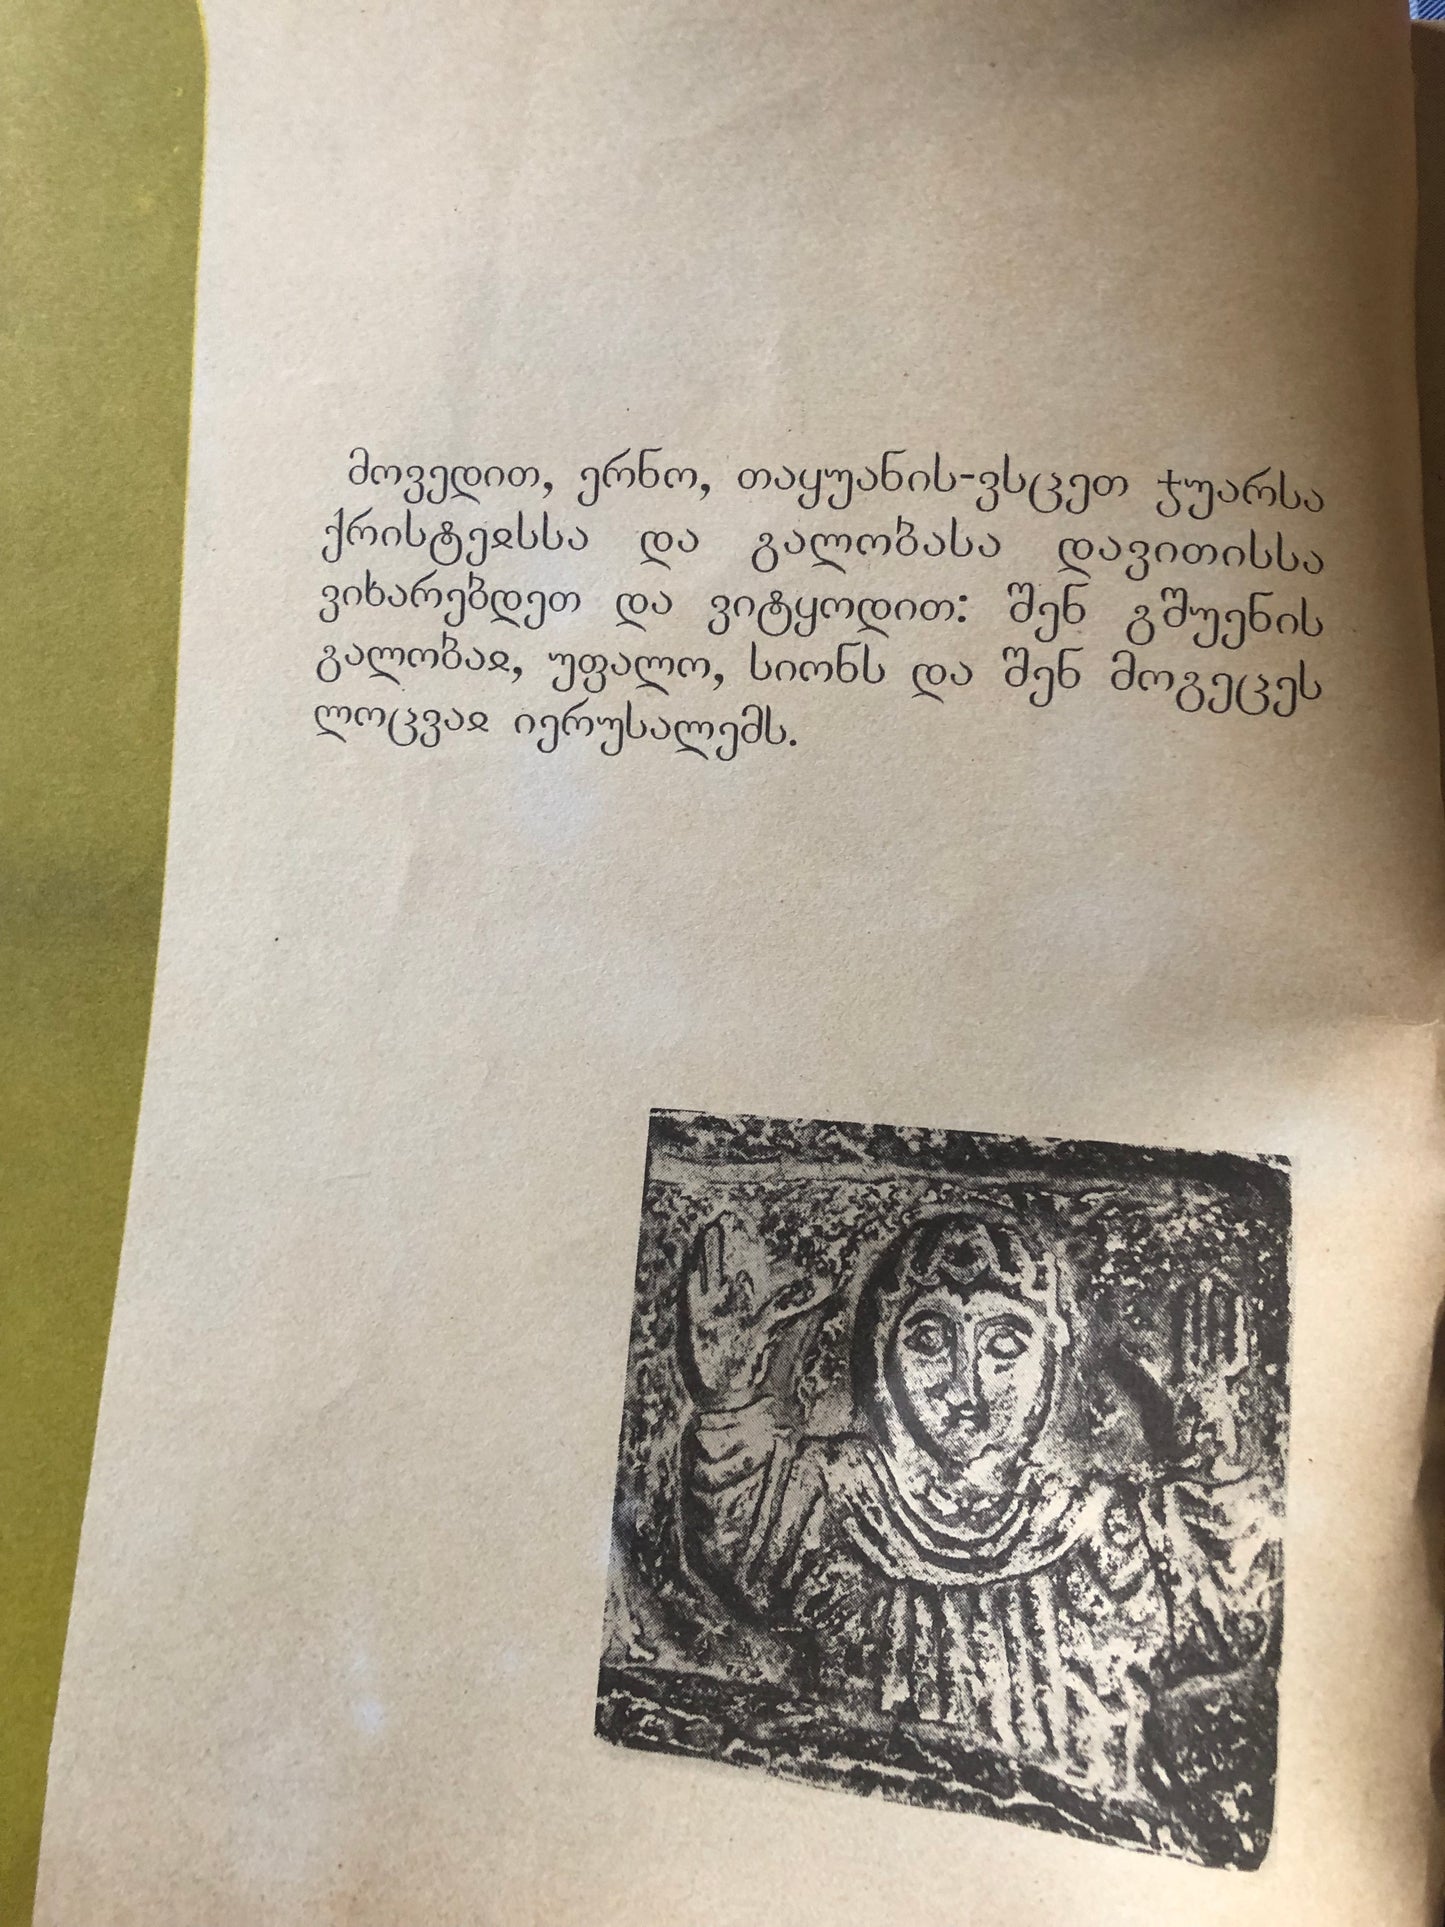 მოვედით, ერნო, თაყუანის-ვსცეთ ჯუარსა
ქრისტეჲსსა და გალობასა დავითისსა
ვიხარებდეთ და ვიტყოდით: შენ გშუენის
გალობაჲ, უფალო, სიონს და შენ მოგეცეს
ლოცვაჲ იერუსალემს.